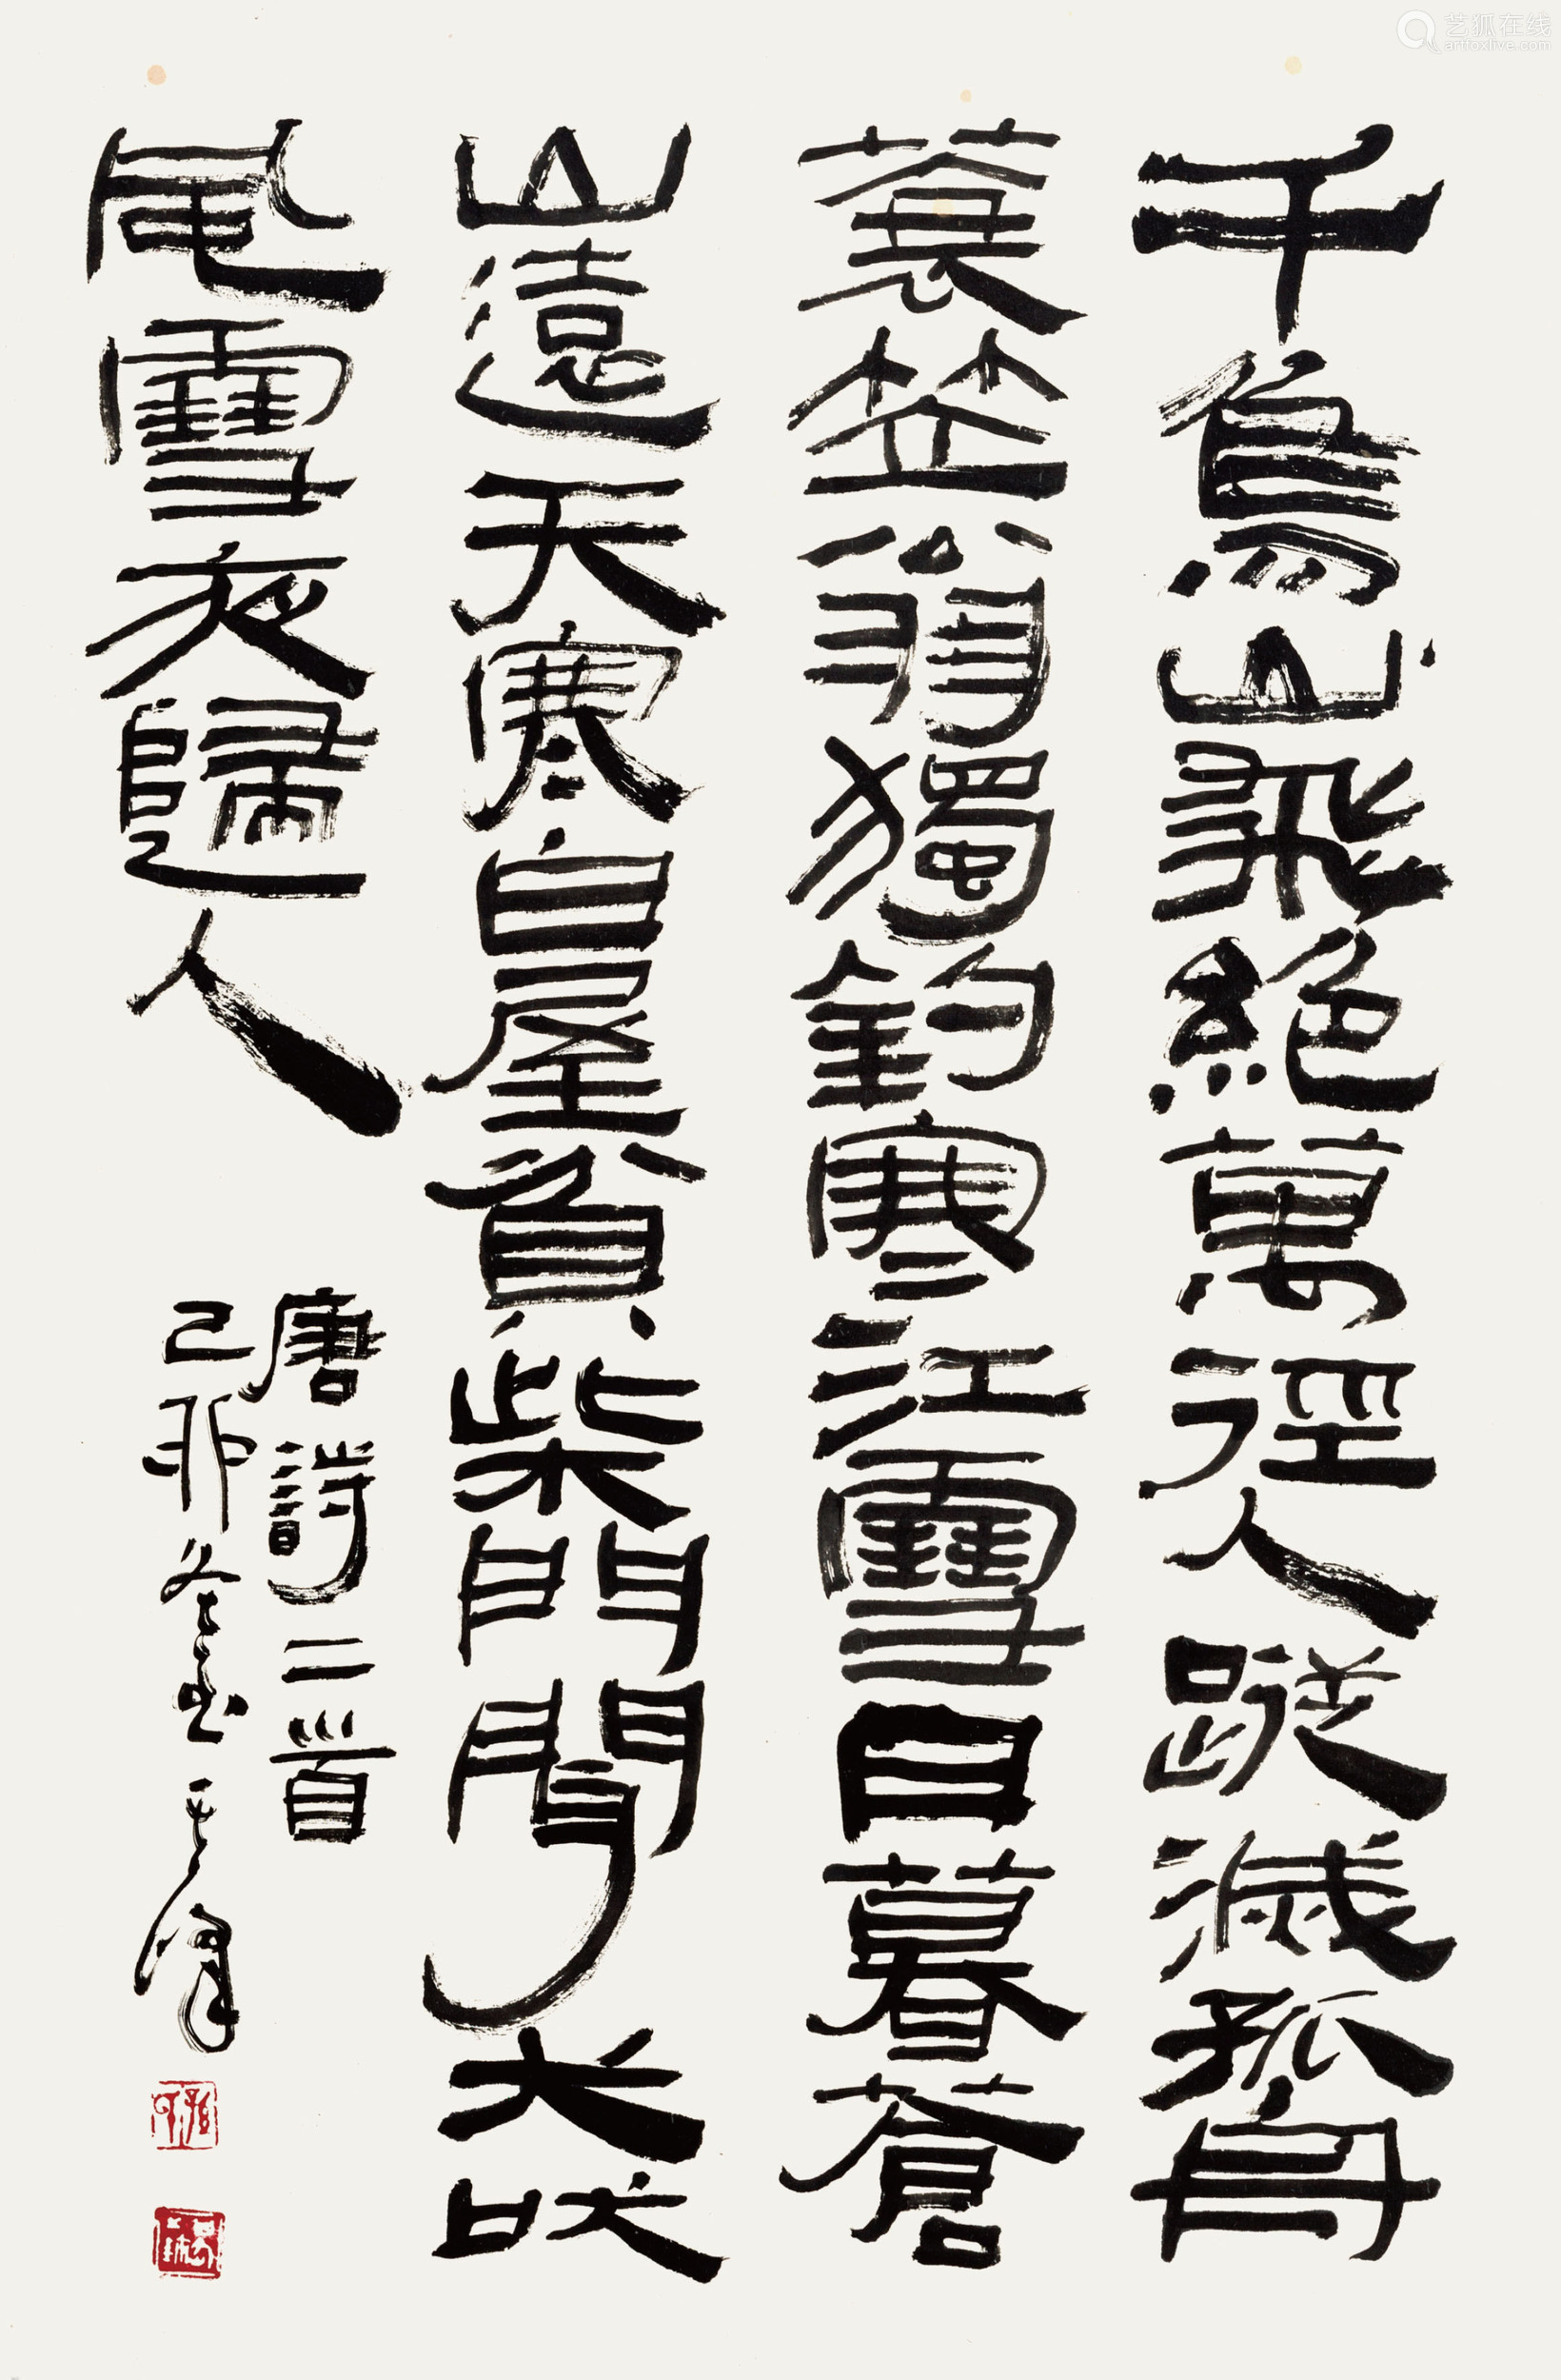 千鳥山飛絕萬徑人蹤滅孤舟
蓑笠翁獨釣寒江雪日暮蒼
山遠天寒白屋貧柴門聞犬吠
風雪夜歸人
唐詩二首
己卯冬至其峰
艺狐在线
artfoxlive.com